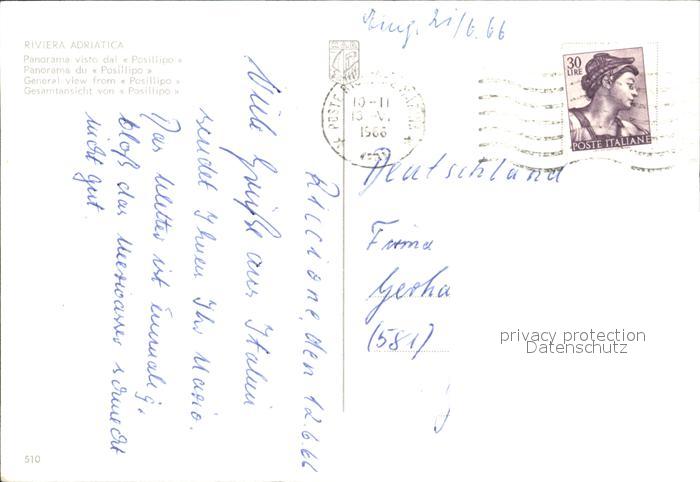 Eing. 21/6.66
RIVIERA ADRIATICA
Panorama visto dal « Posillipo »
Panorama du « Posillipo »
General view from « Posillipo »
Gesamtansicht von « Posillipo »
10-11
1966
30
LIRE
POSTE ITALIANE
Riccione, den 12.6.66
Viele Grüße aus Italien
sendet Ihnen Ihr
Das Wetter ist einmalig,
bloß das Meerwasser schmeckt
nicht gut.
Deutschland
Firma
(581)
privacy protection
Datenschutz
510